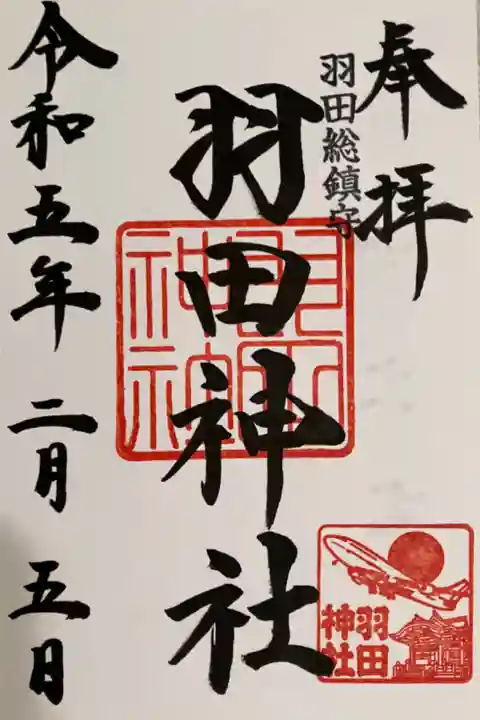 奉拝
羽田総鎮守
羽田神社
令和五年二月五日
羽田
神社